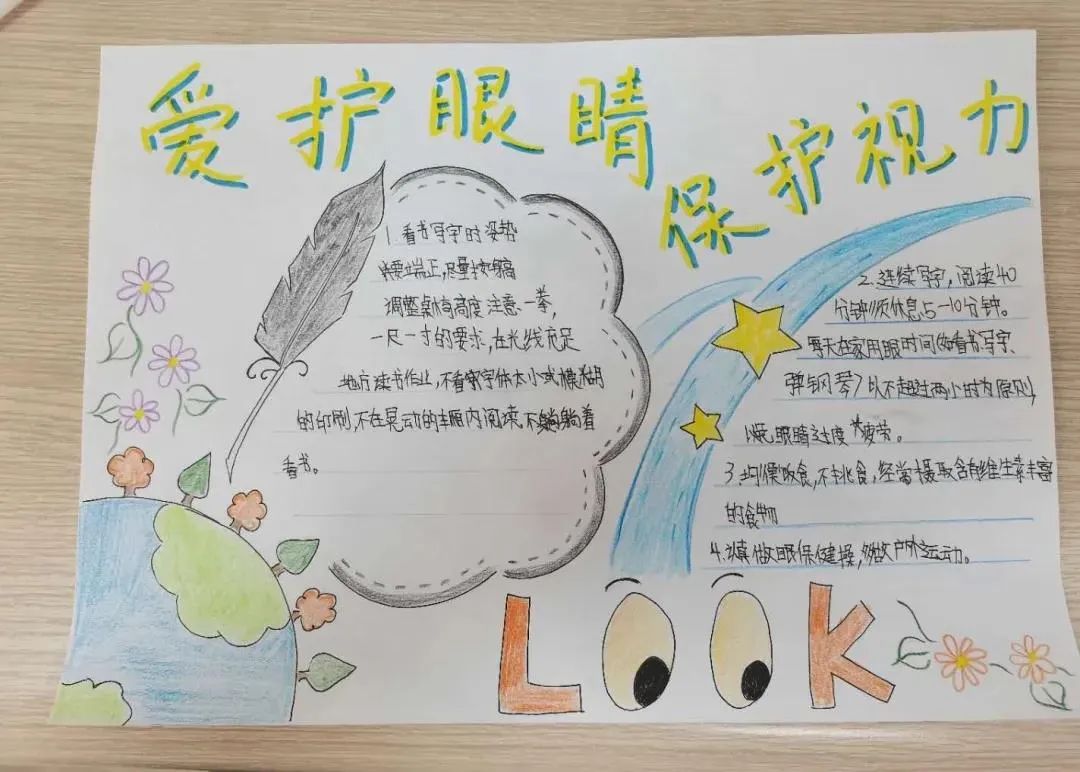 爱护眼睛
保护视力
1.看书写字时姿势
要端正,尽量按身高
调整桌椅高度注意一拳,
一尺一寸的要求,在光线充足
地方读书作业,不看字体太小或模糊
的印刷,不在晃动的车厢内阅读.不躺着
看书。
2.连续写字,阅读40
分钟须休息5-10分钟。
每天在家用眼时间(如看书写字、
弹钢琴)以不超过两小时为原则,
以免眼睛过度疲劳。
3.均衡饮食,不挑食,经常摄取含维生素丰富
的食物
4.认真做眼保健操,多做户外运动。
LOOK